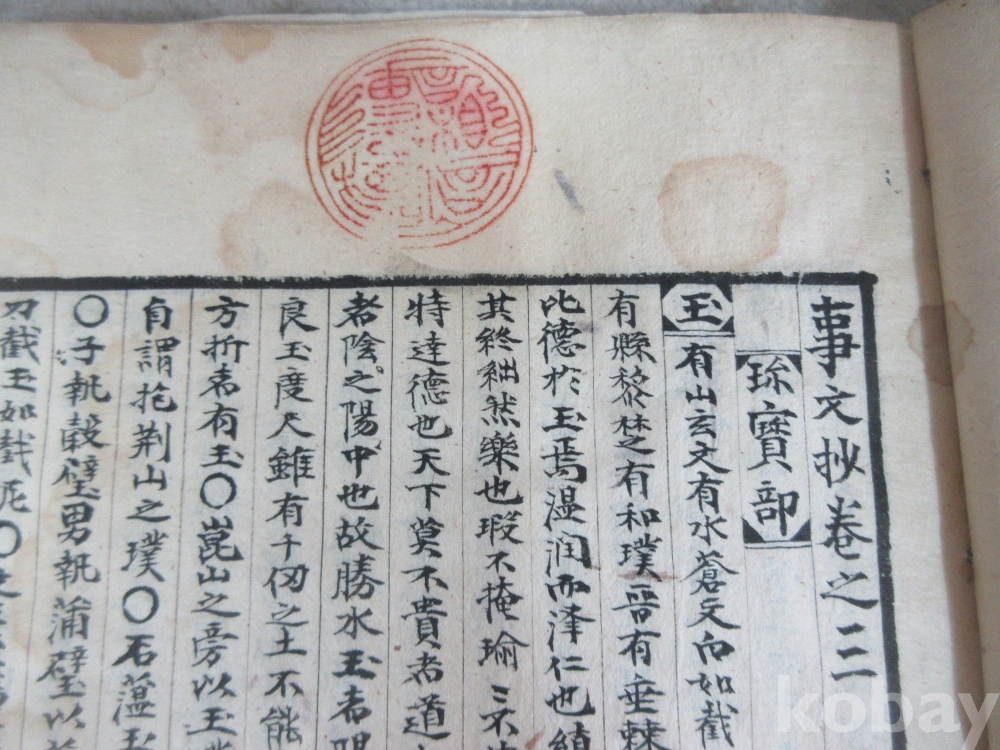 事文抄卷之三
珎寶部
玉 有山玄文有水蒼文白如截
有縣黎楚有和璞晋有垂棘
比德於玉焉温润而泽仁也
其終絀然樂也瑕不掩瑜
特達德也天下莫不貴者道
者陰之陽中也故勝水玉者陽
良玉度尺雖有千仞之土不能
方折者有玉〇崑山之旁以玉
自謂抱荆山之璞〇石蕴玉
〇子執穀璧男執蒲璧以
刀截玉如截泥〇
kobay